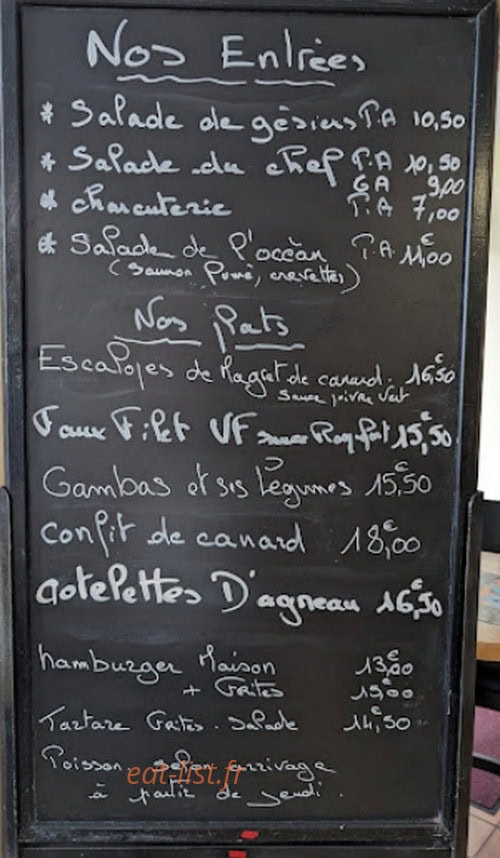 Nos Entrées
* Salade de gésiers P.A 10,50
* Salade du chef P.A 10,50
GA 9,00
* charcuterie P.A 7,00
* Salade de l'océan P.A. 11,00 €
(Saumon fumé, crevettes)
Nos plats
Escalopes de Magret de canard. 16,50 €
Sauce poivre vert
Faux Filet VF sauce Roquefort 15,50 €
Gambas et ses Légumes 15,50 €
Confit de canard 18,00 €
Cotelettes D'agneau 16,50 €
hamburger Maison 13,00 €
+ Frites 15,00 €
Tartare Frites. Salade 14,50 €
Poisson selon arrivage
à partir de jeudi.
eat-list.fr